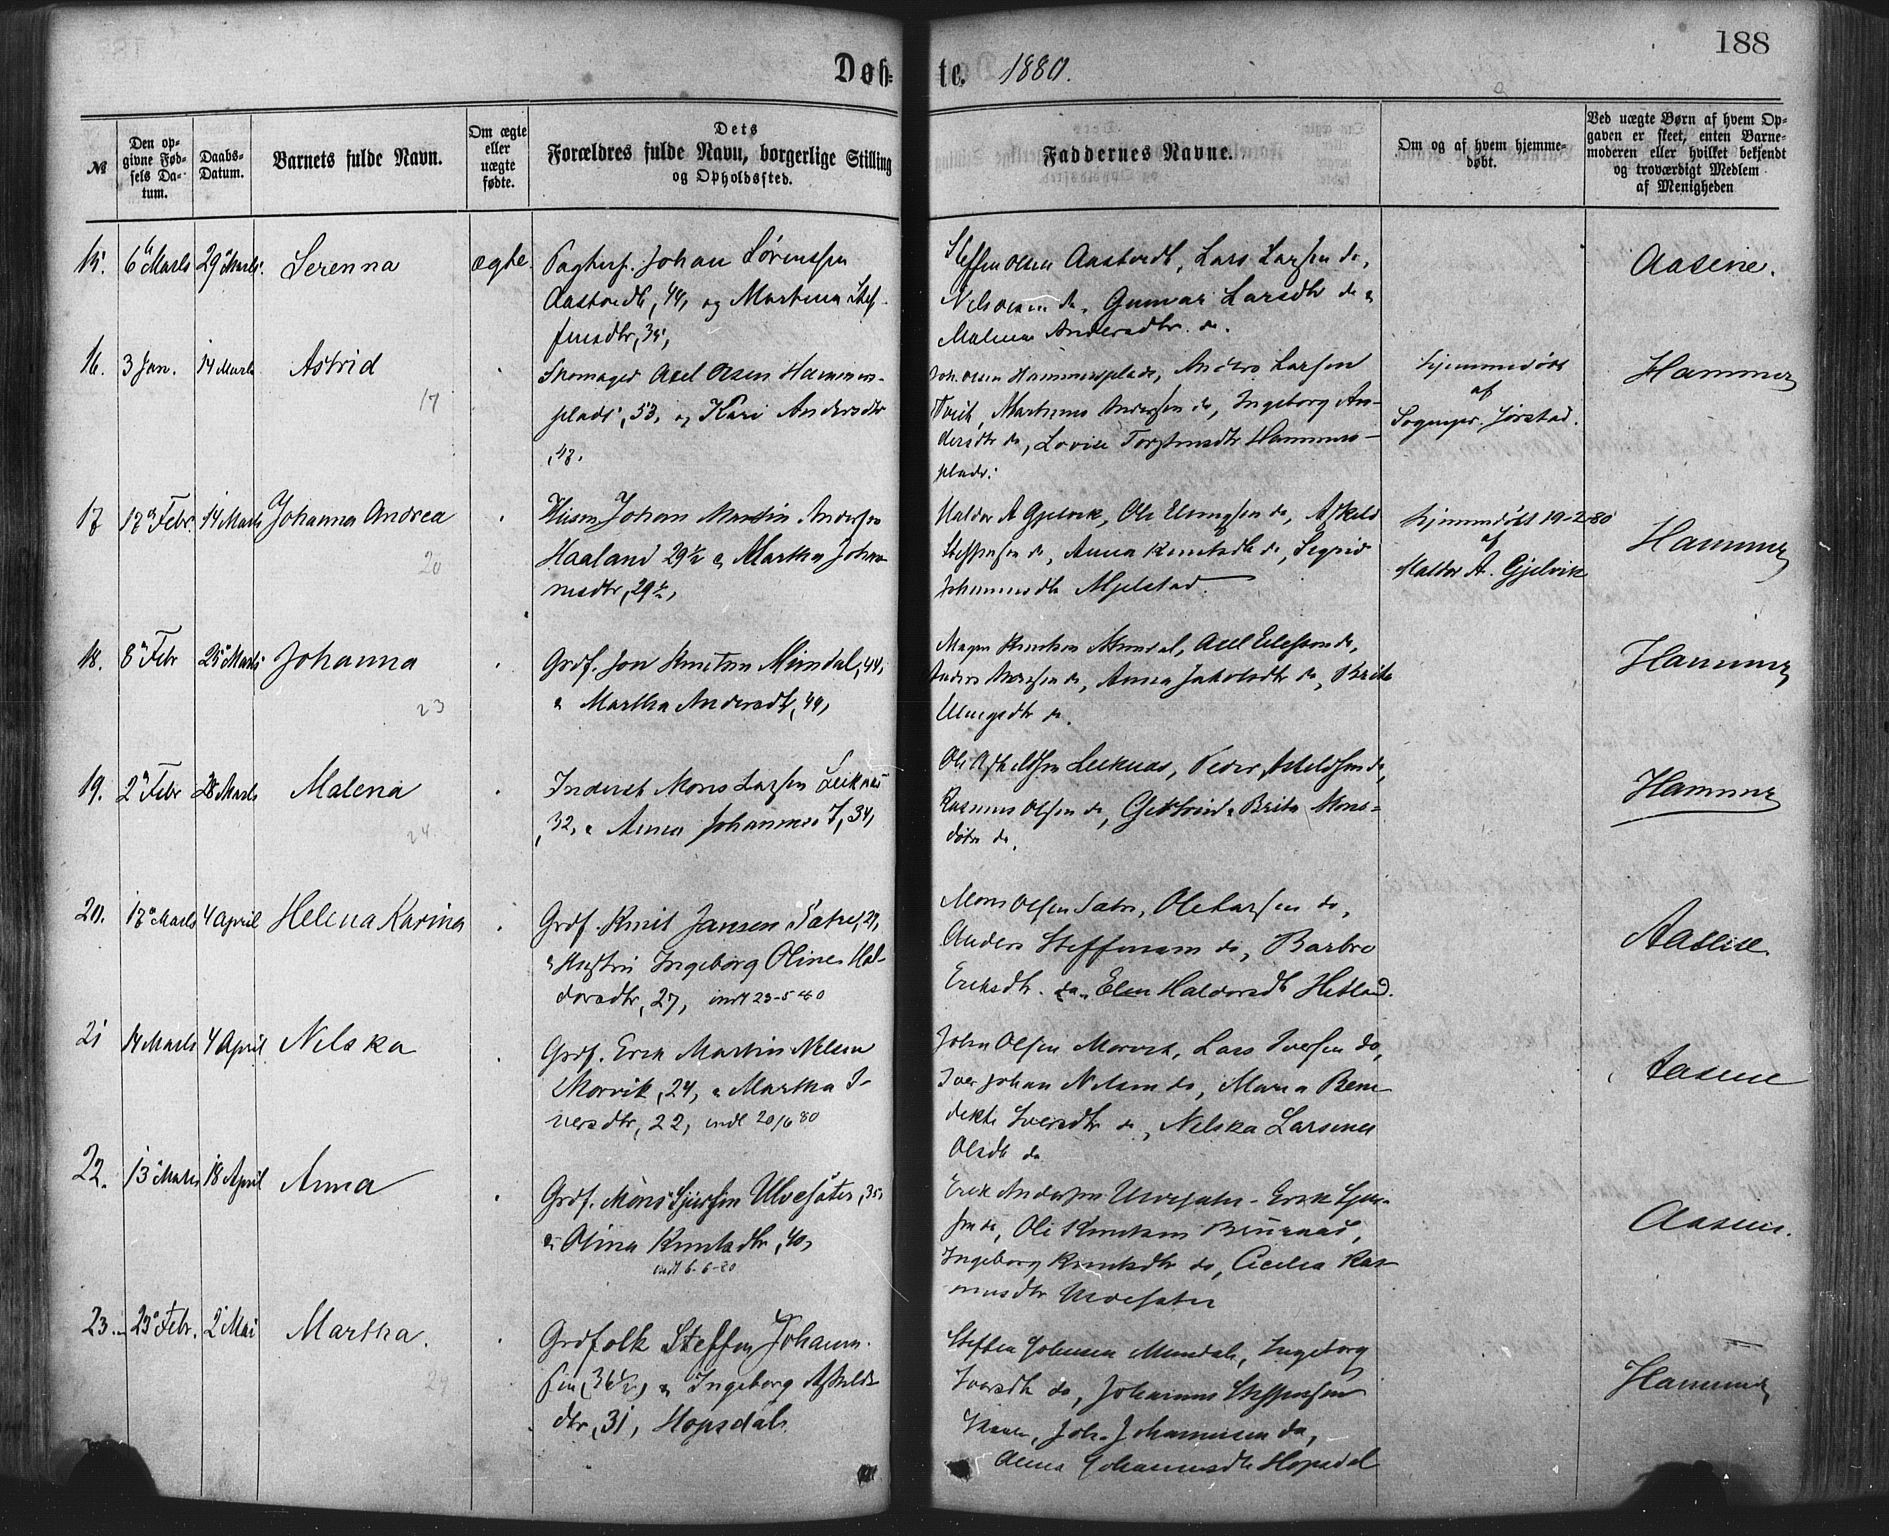 188
Døb-
te. 1880.
№
Den op-
givne Fød-
sels Da-
tum.
Daabs-
Datum.
Barnets fulde Navn.
Om ægte
eller
uægte
fødte.
Dets
Forældres fulde Navn, borgerlige Stilling
og Opholdssted.
Faddernes Navne.
Om og af hvem hjemme-
døbt.
Ved uægte Børn af hvem Op-
gaven er skeet, enten Barne-
moderen eller hvilket bekjendt
og troværdigt Medlem
af Menigheden
15. 6 Marts 29 Marts. Serenna ægte. Johan Sørenssen
Aastvedt, 44, og Martina Stef-
fensdtr, 35,
Steffen Olsen Aastvedt, Lars Larsen do,
Nils Olsen do, Gunvor Larsdtr do &
Malena Andersdtr. do.
Aasene.
16. 3 Jan. 14 Marts Astrid
17
Skomager Axel Olsen Hammers-
plads, 53, og Kari Andersdtr
, 43.
Joh. Olsen Hammersplads, Anders Larsen
Martinus Andersen do, Ingeborg An-
dersdtr do, Lovise Hammers-
plads.
hjemmedøbt
af
Sognepr. Jørstad.
Hammer
17 17 Febr. 14 Marts Johanna Andrea
20
Huusm Johan Martin Andersen
Haaland 29½ & Martha Johan-
nesdtr, 29½,
Haldor A Gjelvik, Ole do, Askeld
Steffensen do, Anna Knutsdtr do, Sigrid
Johannesdtr Mjelstad.
hjemmedøbt 19-2-80
af
Haldor A. Gjelvik
Hammer
18. 8 Febr 25 Marts Johanna
23
Grdf. Jon Knutsen Mundal, 44,
& Martha Andersdtr, 44,
Magne Knutsen Mundal, Axel do,
Anders do, Anna Jakobsdtr do, Brita
do.
Hammer
19. 2 Febr 28 Marts Malena
24.
Inderst Mons Larsen Leiknes
, 32, & Anna Johannesd, 34,
Ole Leiknes, Peder Askeldsen do,
Rasmus Olsen do, & Brita Mons-
døtre do.
Hammer
20. 17 Marts 4 April Helena Karina
Grdf. Knut Jansen Sætre, 29,
& Hustru Ingeborg Oline Hal-
dorsdtr, 27, indt 23-5-80
Mons Olsen Sætre, Ole Larsen do,
Anders Steffensen do, Barbro
Eriksdtr. do. Elen Haldorsdtr Hetland.
Aasene.
21 14 Marts 4 April Nilska
Grdf. Erik Martin Nilsen
Morvik, 24, & Martha I-
versdtr, 22, indt 20/6 80
John Olsen Morvik, Lars Iversen do,
Iver Johan Nilsen do, Maria Bene-
dikte Iversdtr do, Nilska Larsine
Olsdtr do
Aasene
22. 13 Marts 18 April Anna
Grdf. Mons Sjursen Ulvesæter, 35,
& Olina Knutsdtr, 40,
indt 6-6-80
Erik Andersen Ulvesæter, Erik Sjur-
sen do, Ole Knutsen Bruraas,
Ingeborg Knutsdtr do, Cecilia Ras-
musdtr Ulvesæter
Aasene.
23. 23 Febr. 2 Mai Martha.
29
Grdfolk Steffen Johann.
sen (36½) & Ingeborg Askelds-
dtr, 31, Hopsdal.
Steffen Johnsen Mundal, Ingeborg
Iversdtr do, Johannes Steffensen
Joh. Johannesen do,
Anna Johannesdtr Hopsdal
Hammer